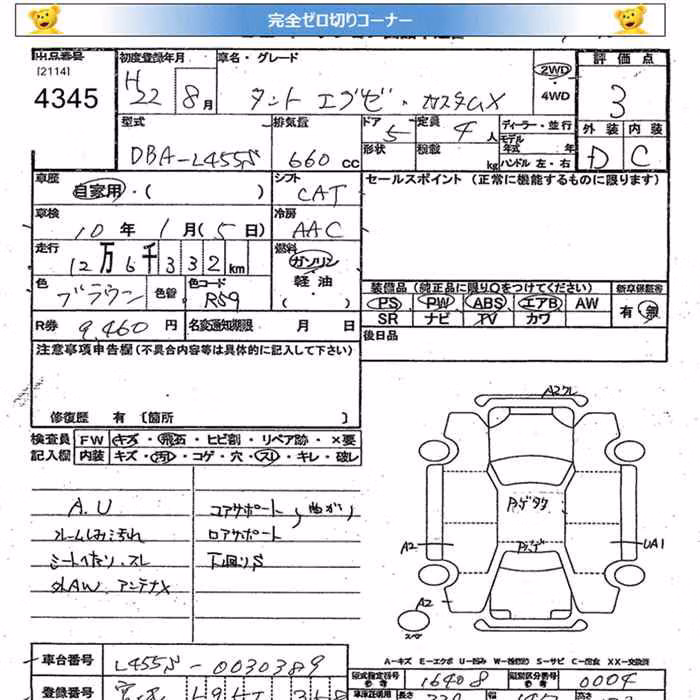 完全ゼロ切りコーナー
出品番号 初度登録年月 車名・グレード 評価点
[2114]
4345 H22 8月 タント エグゼ・カスタムX 2WD・4WD 3
外装 内装
D C
型式 排気量 ドア 定員 ディーラー・並行
DBA-L455S 660cc 5 4人 モデル年式 年
形状 積載 kg ハンドル 左・右
車歴 シフト セールスポイント (正常に機能するものに限ります)
自家用・( ) CAT
車検 冷房
10年1月(5日) AAC
走行 燃料
12万6千332km ガソリン・軽油・( )
色 色替 色コード
ブラウン R59
装備品 (純正品に限り○をつけてください) 新車保証書
PS PW ABS エアB AW 有・無
SR ナビ TV カワ
R券 9,460円 名変通知期限 月 日 後日品
注意事項申告欄(不具合内容等は具体的に記入して下さい)
修復歴 有 〔箇所 〕
検査員 FW キズ・飛石・ヒビ割・リペア跡・×要
記入欄 内装 キズ・汚れ・コゲ・穴・スレ・キレ・破レ
A.U コアサポート、曲がり
ルームしみ汚れ ロアサポート
シートへたり・スレ 下廻りS
外AW アンテナX
A2クレ
A2
UA1
A2
A-キズ E-エクボ U-凹み W-(修理跡) S-サビ C-腐食 XX-交換済
車台番号 L455S-0030389
型式指定番号 16408 類別区分番号 0004
登録番号
長さ